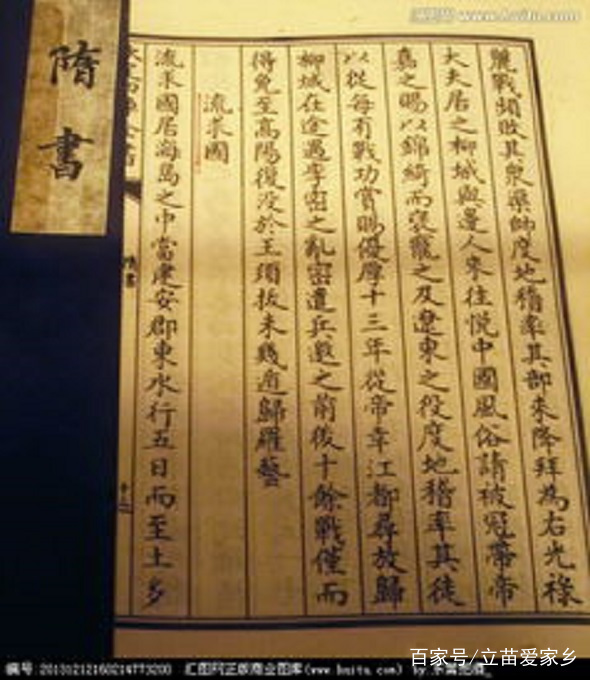 隋書
麗戰頻敗其衆渠帥度地稽率其部来降拜為右光祿
大夫居之柳城與邊人来往悅中國風俗請被冠帶帝
嘉之賜以錦綺而褒寵之及遼東之役度地稽率其徒
以從每有戰功賞賜優厚十三年從帝幸江都尋放歸
柳城在途遇李密之亂密遣兵邀之前後十餘戰僅而
得免至高陽復没於王須拔未幾遁歸羅藝
流求國
流求國居海島之中當建安郡東水行五日而至土多
隋書
百家号/立苗爱家乡